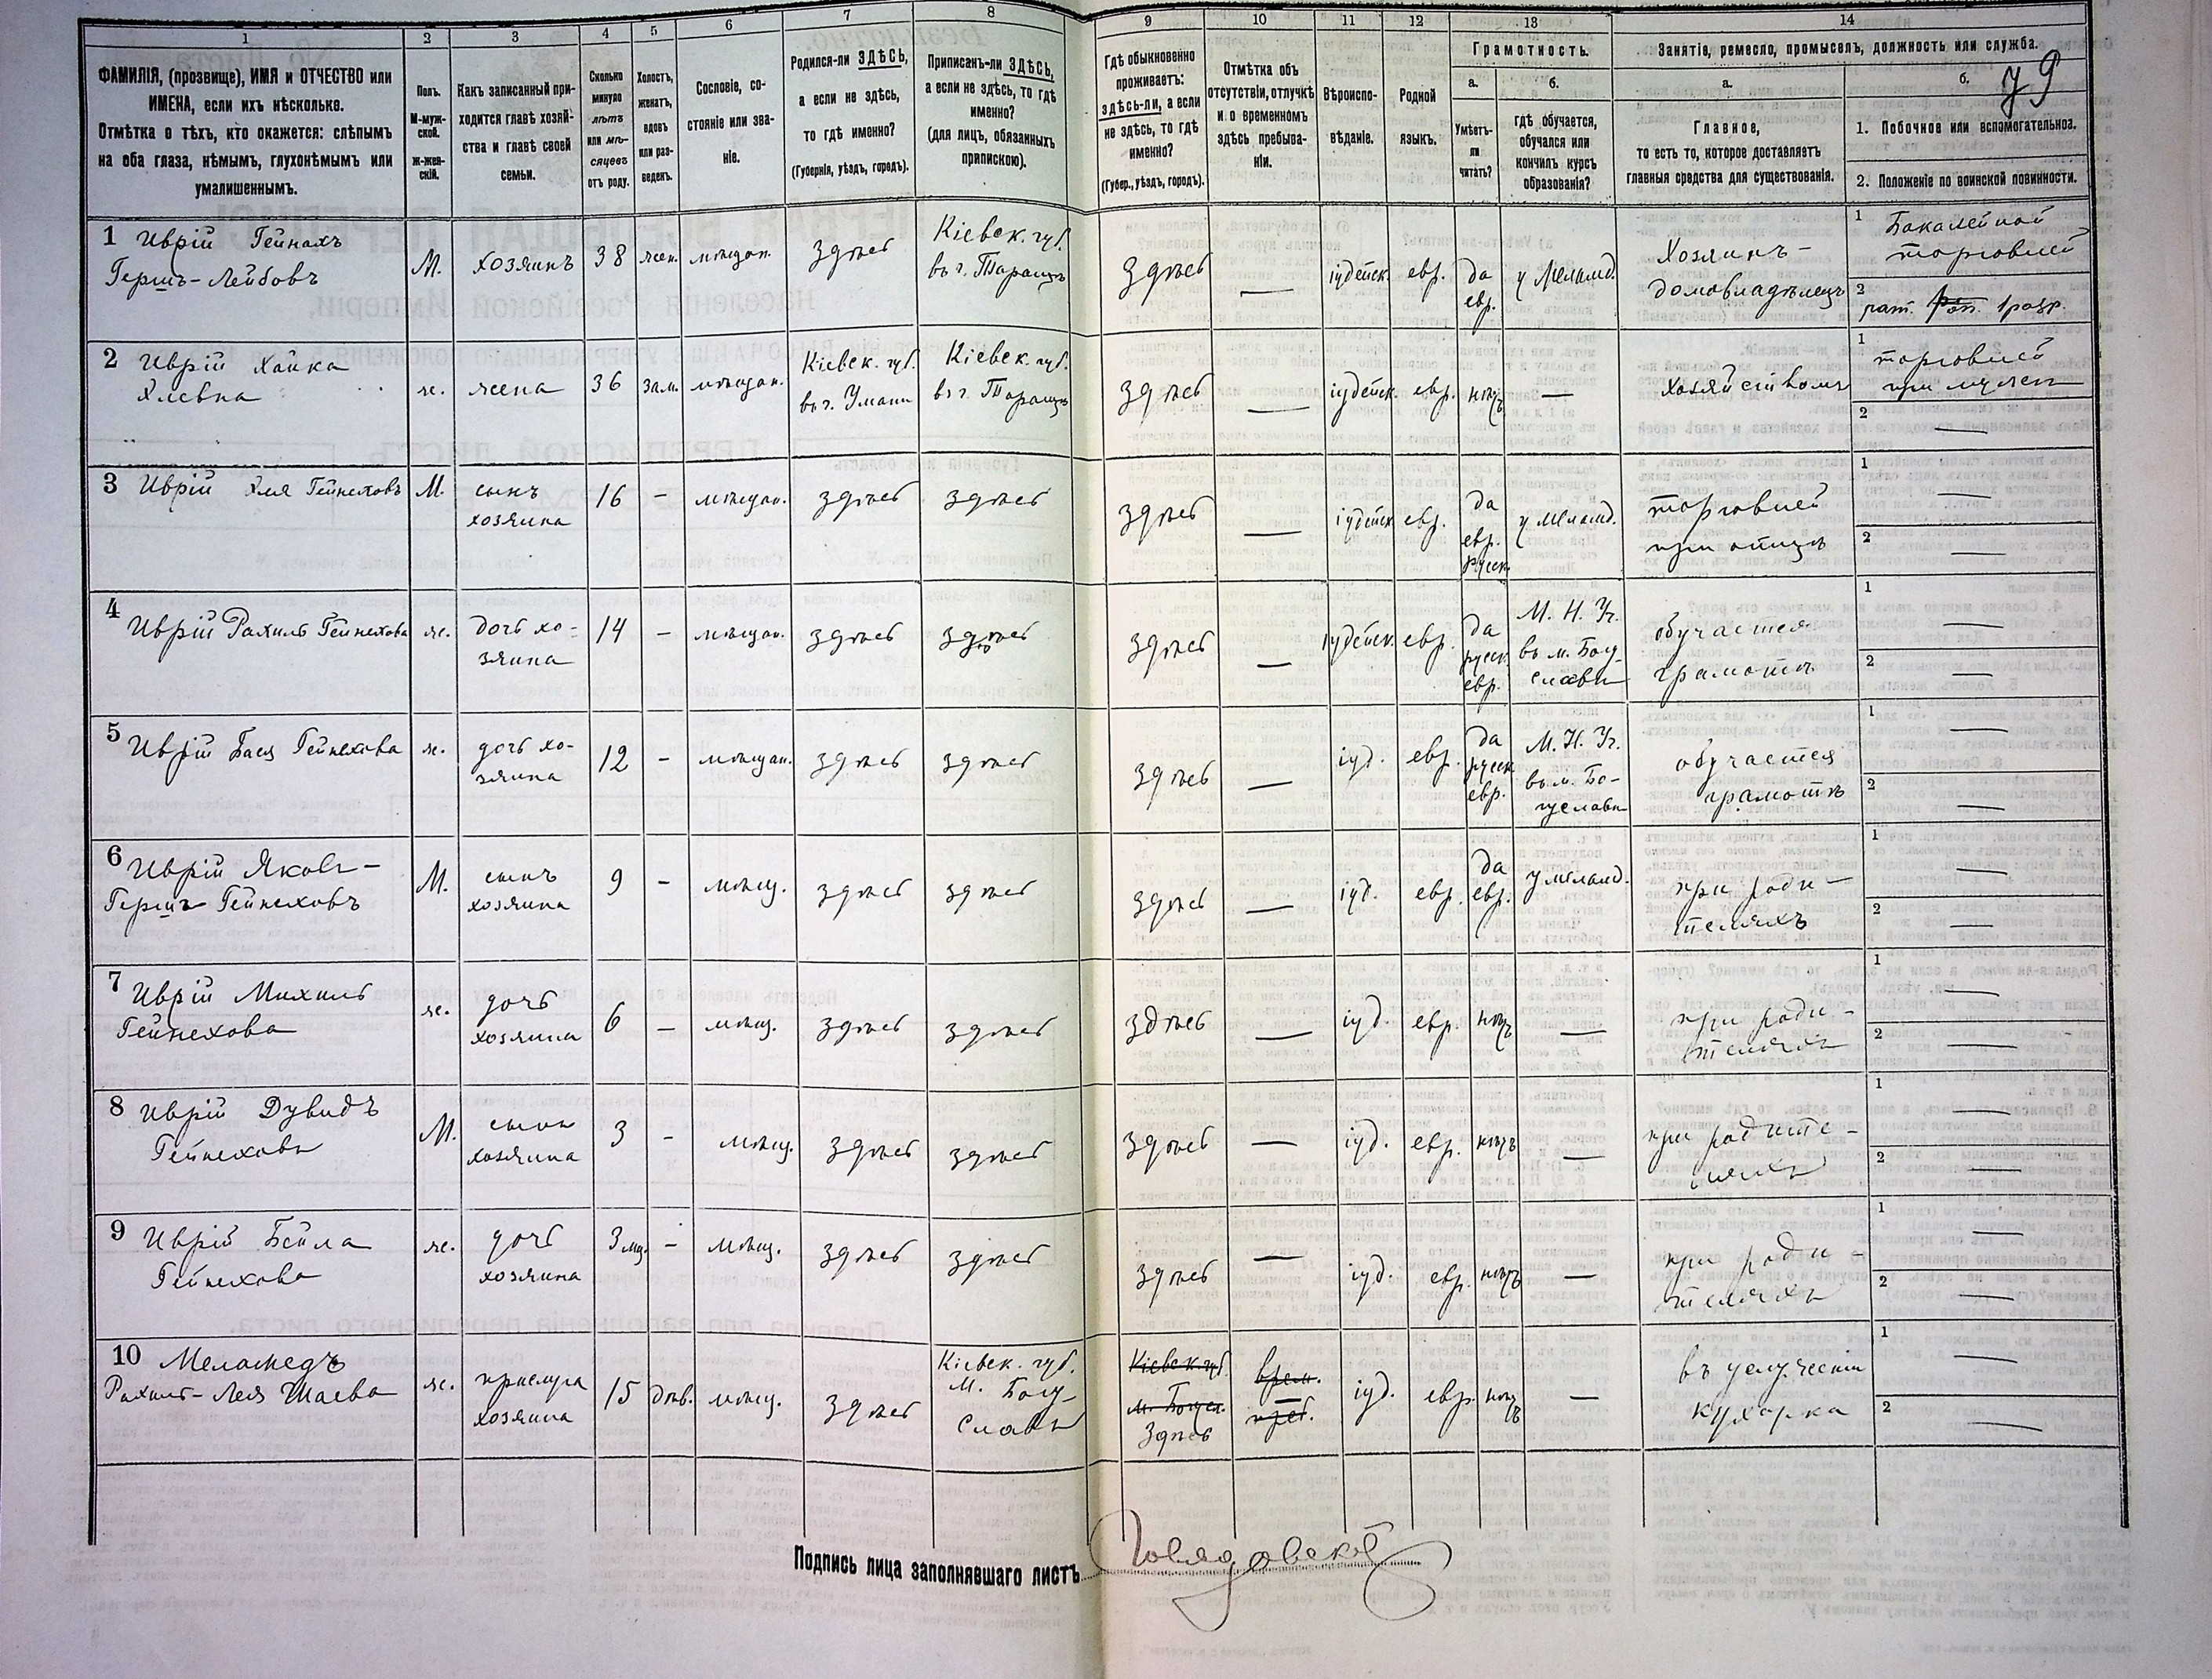 1 2 3 4 5 6 7 8 9 10 11 12 13 14
ФАМИЛІЯ, (прозвище), ИМЯ и ОТЧЕСТВО или
ИМЕНА, если ихъ нѣсколько.
Отмѣтка о тѣхъ, кто окажется: слѣпымъ
на оба глаза, нѣмымъ, глухонѣмымъ или
умалишеннымъ.
Полъ.
М-муж-
ской.
ж-жен-
скій.
Какъ записанный при-
ходится главѣ хозяй-
ства и главѣ своей
семьи.
Сколько
минуло
лѣтъ
или мѣ-
сяцевъ
отъ роду.
Холостъ,
женатъ,
вдовъ
или раз-
веденъ.
Сословіе, со-
стояніе или зва-
ніе.
Родился-ли ЗДѢСЬ,
а если не здѣсь,
то гдѣ именно?
(Губернія, уѣздъ, городъ).
Приписанъ-ли ЗДѢСЬ,
а если не здѣсь, то гдѣ
именно?
(для лицъ, обязанныхъ
припискою).
Гдѣ обыкновенно
проживаетъ:
здѣсь-ли, а если
не здѣсь, то гдѣ
именно?
(Губер., уѣздъ, городъ).
Отмѣтка объ
отсутствіи, отлучкѣ
и о временномъ
здѣсь пребыва-
ніи.
Вѣроиспо-
вѣданіе.
Родной
языкъ.
Грамотность.
а.
Умѣетъ-
ли
читать?
б.
гдѣ обучается,
обучался или
кончилъ курсъ
образованія?
Занятіе, ремесло, промыселъ, должность или служба.
а.
Главное,
то есть то, которое доставляетъ
главныя средства для существованія.
б.
79
1. Побочное или вспомогательное.
2. Положеніе по воинской повинности.
1 Иврій Гейнахъ
Гершъ-Лейбовъ
М.
хозяинъ
38
жен.
мѣщан.
здѣсь
Кіевск. губ.
въ г. Таращѣ
здѣсь
—
іудейск.
евр.
да
евр.
у Меламд.
Хозяинъ-
домовладѣлецъ
1 Бакалейной
торговлей
2 рат. 1 разр.
2 Иврій Хайка
ж.
жена
36
зам.
мѣщан.
Кіевск. губ.
въ г. Умани
Кіевск. губ.
въ г. Таращѣ
здѣсь
—
іудейск.
евр.
нѣтъ
—
хозяйством
1 торговлей
при мужѣ
2 —
3 Иврій Эля Гейнеховъ
М.
сынъ
хозяина
16
-
мѣщан.
здѣсь
здѣсь
здѣсь
—
іудейск
евр.
да
евр.
русск
у меламд.
торговлей
при отцѣ
1 —
2 —
4 Иврій Рахиль Гейнехова
ж.
дочь хо-
зяина
14
-
мѣщан.
здѣсь
здѣсь
здѣсь
—
іудейск.
евр.
да
русск
евр.
М. Н. Уч.
въ м. Богу-
славѣ
обучается
грамотѣ
1 —
2 —
5 Иврій Бася Гейнехова
ж.
дочь хо-
зяина
12
-
мѣщан.
здѣсь
здѣсь
здѣсь
—
іуд.
евр.
да
русск
евр.
М. Н. Уч.
въ м. Бо-
гуславѣ
обучается
грамотѣ
1
2 —
6 Иврій Яковъ-
Гершъ Гейнеховъ
М.
сынъ
хозяина
9
-
мѣщ.
здѣсь
здѣсь
здѣсь
—
іуд.
евр.
да
евр.
у меламд.
при роди-
теляхъ
1 —
2 —
7 Иврій Михиль
Гейнехова
ж.
дочь
хозяина
6
-
мѣщ.
здѣсь
здѣсь
здѣсь
—
іуд.
евр.
нѣтъ
—
при роди-
теляхъ
1 —
2 —
8 Иврій Дувидъ
Гейнеховъ
М.
сынъ
хозяина
3
-
мѣщ.
здѣсь
здѣсь
здѣсь
—
іуд.
евр.
нѣтъ
—
при родите-
ляхъ
1 —
2 —
9 Иврій Бейла
Гейнехова
ж.
дочь
хозяина
3 мц.
-
мѣщ.
здѣсь
здѣсь
здѣсь
—
іуд.
евр.
нѣтъ
—
при роди-
теляхъ
1 —
2 —
10 Меламедъ
Рахиль-Лея Шаева
ж.
прислуга
хозяина
15
дѣв.
мѣщ.
здѣсь
Кіевск. губ.
М. Богу-
славъ
Кіевск губ
м. Богусл.
Здѣсь
врем.
—
преб.
іуд.
евр.
нѣтъ
—
въ услуженіи
кухарка
1 —
2 —
Подпись лица заполнявшаго листъ